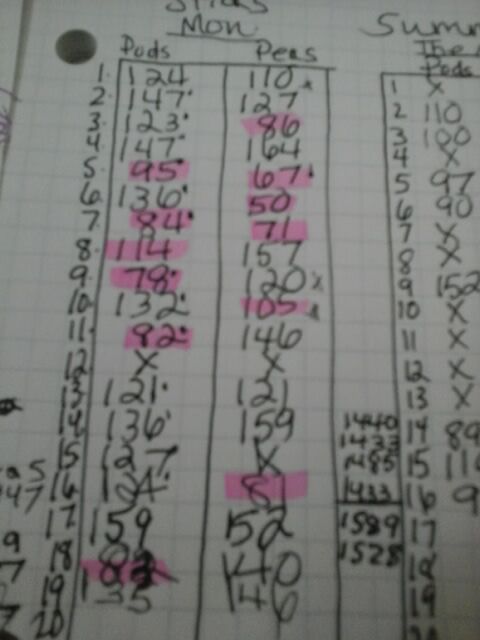 Sticks
Mon
Summ
Pods Peas
Pods
1. 124 110 1 X
2. 147 127 2 110
3. 123 86 3 100
4. 147 164 4 X
5. 95 67 5 97
6. 136 50 6 90
7. 84 71 7 X
8. 114 157 8 X
9. 78 120 x 9 152
10. 132 105 10 X
11. 82 146 11 X
12 X X 12 X
13 121 121 13 X
14 136 159 1440 14 89
1433
15 127 X 1485 15
16 81 1433 16 9
17 159 152 1589 17
1528
18 140 18
19 135 146 19
20